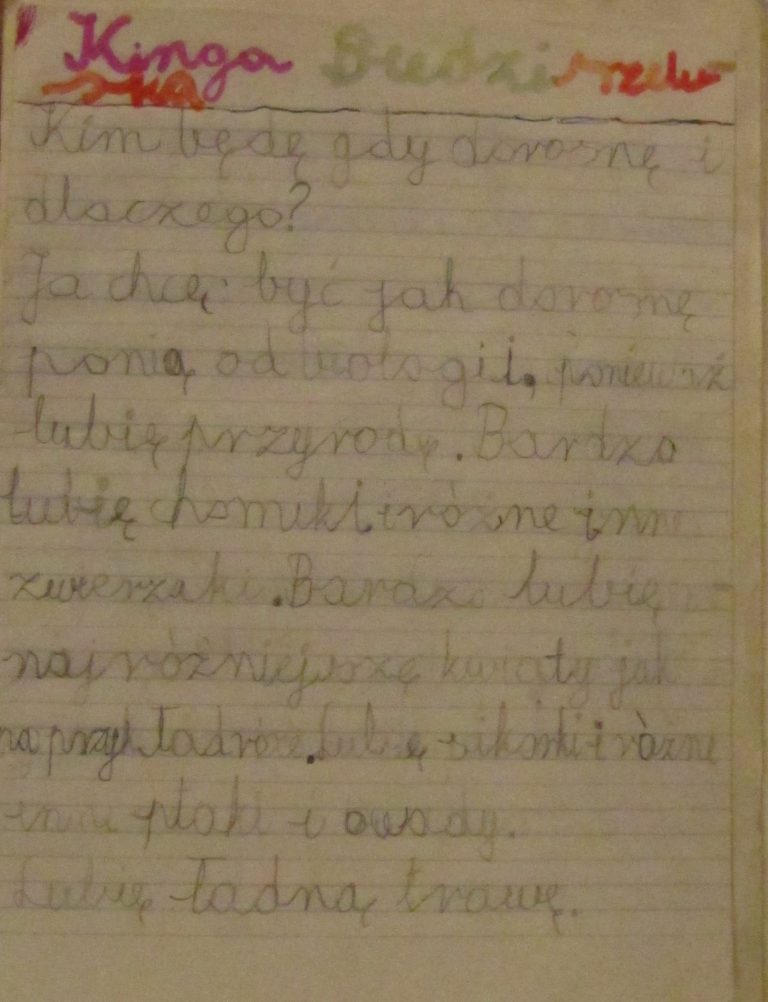 Kinga Siedzi szew
ska
Kim będę gdy dorosnę i
dlaczego?
Ja chcę być jak dorosnę
panią od biologii, ponieważ
lubię przyrodę. Bardzo
lubię chomiki i różne inne
zwierzaki. Bardzo lubię
najróżniejszę kwiaty jak
na przykład róże. Lubię sikorki i różne
inne ptaki i owady.
Lubię ładną trawę.